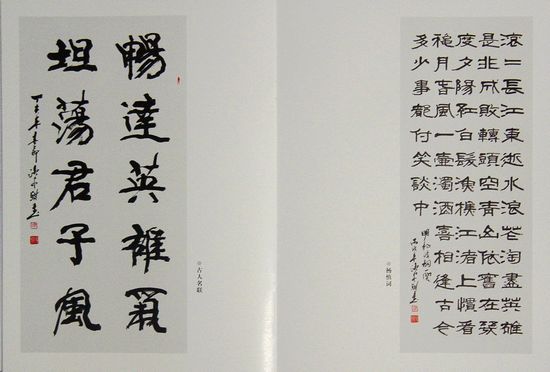 暢達英雄氣
坦蕩君子風
丁亥年春節
古人名联
滾二長江東逝水浪花淘盡英雄
是非成敗轉頭空青山依舊在幾
度夕陽紅白髮漁樵江渚上慣看
穐月春風一壺濁酒喜相逢古今
多少事都付笑談中
杨慎词